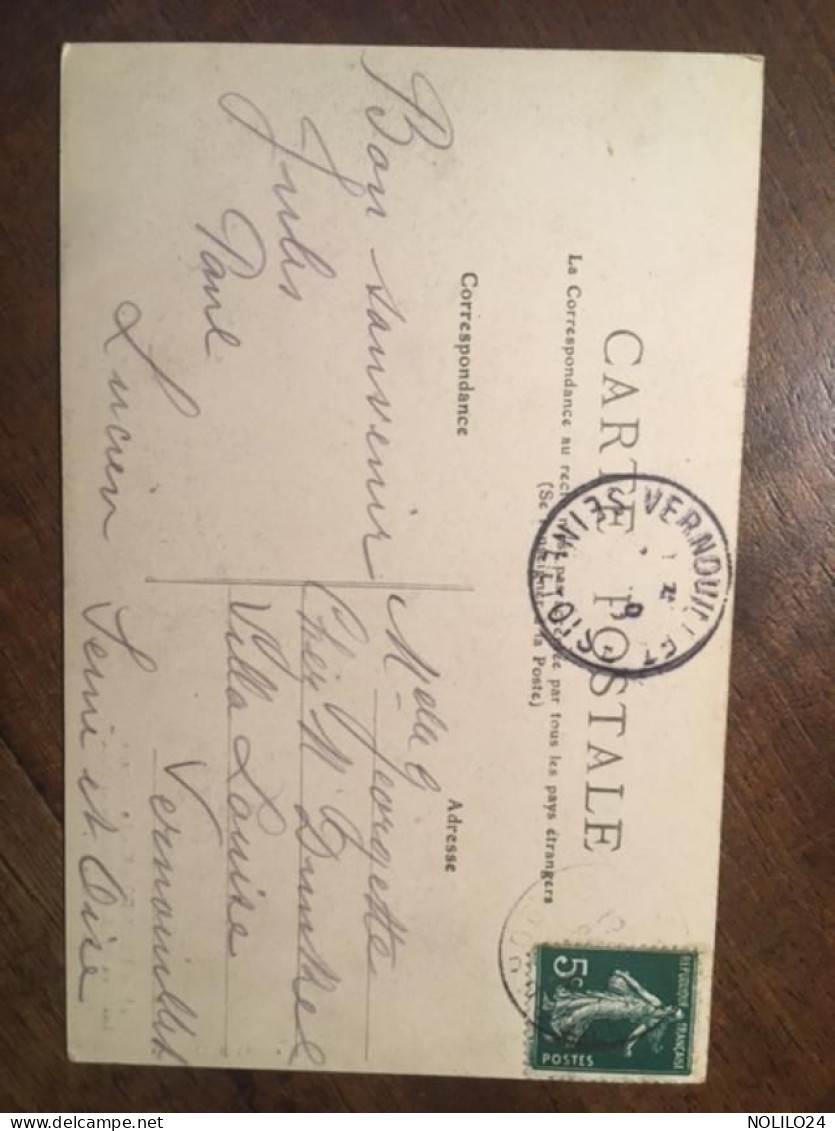 CARTE POSTALE
La Correspondance au recto n'est pas acceptée par tous les pays étrangers
(Se renseigner à la Poste)
Correspondance
Adresse
Bon souvenir
Jules
Paul
Lucien
Melle Georgette
Chez Mr Dunkel
Villa Louise
Vernouillet
Seine et Oise
VERNOUILLET
SEINE-ET-OISE
RÉPUBLIQUE FRANÇAISE
5c
POSTES
NOLILO24